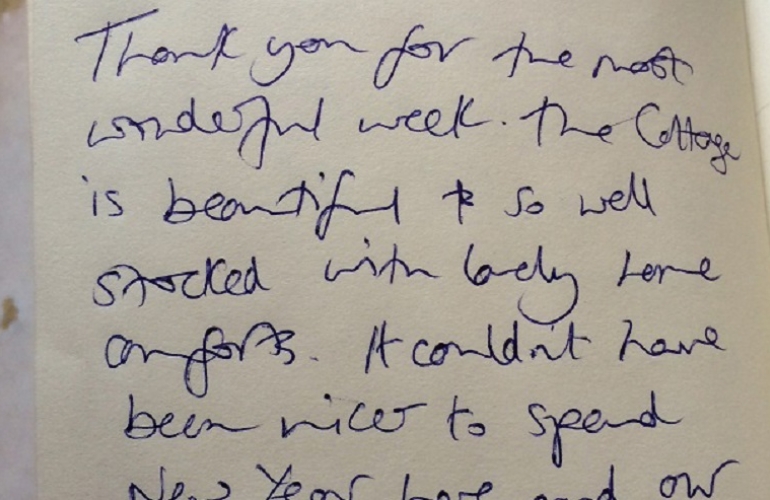 Thank you for the most
wonderful week. The Cottage
is beautiful & so well
stocked with lovely home
comforts. It couldn't have
been nicer to spend
New Year here and our